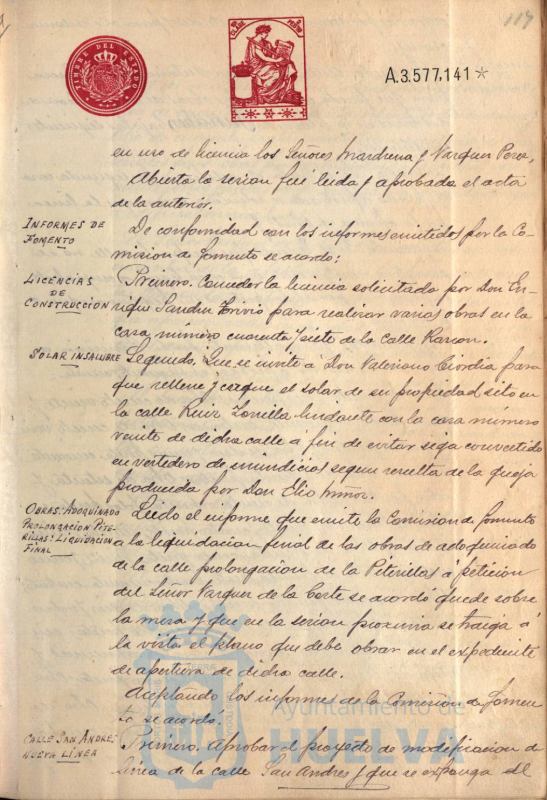 117
TIMBRE DEL ESTADO
A.3.577,141*
en uso de licencia los Señores Mardrena y Vazquez Perez.
Abierta la sesion fué leida y aprobada el acta
de la anterior.
INFORMES DE
FOMENTO
De conformidad con los informes emitidos por la Co-
mision de Fomento se acordo:
LICENCIAS
DE
CONSTRUCCIÓN
Primero. Conceder la licencia solicitada por Don En-
rique Sandra Trivio para realizar varias obras en la
casa, número cuarenta y siete de la calle Rascon.
SOLAR INSALUBRE
Segundo. Que se invite á Don Valeriano Ciordia para
que rellene y cerque el solar de su propiedad sito en
la calle Ruiz Zorrilla lindante con la casa número
veinte de dicha calle a fin de evitar siga convertido
en vertedero de inmundicias segun resulta de la queja
producida por Don Elio
OBRAS: ADOQUINADO
PROLONGACION PITE-
RILLAS: LIQUIDACION
FINAL
Leido el informe que emite la Comision de Fomento
a la liquidacion final de las obras de adoquinado
de la calle prolongacion de la Piterillas á peticion
del Señor Vazquez de la Corte se acordó quede sobre
la mesa y que en la sesion proxima se traiga á
la vista el plano que debe obrar en el expediente
de apertura de dicha calle.
Aceptando los informes de la Comision de Fomen-
to se acordo.
CALLE SAN ANDRES
NUEVA LÍNEA
Primero. Aprobar el proyecto de modificacion de
linea de la calle San Andres y que se exponga al
Ayuntamiento de
HUELVA